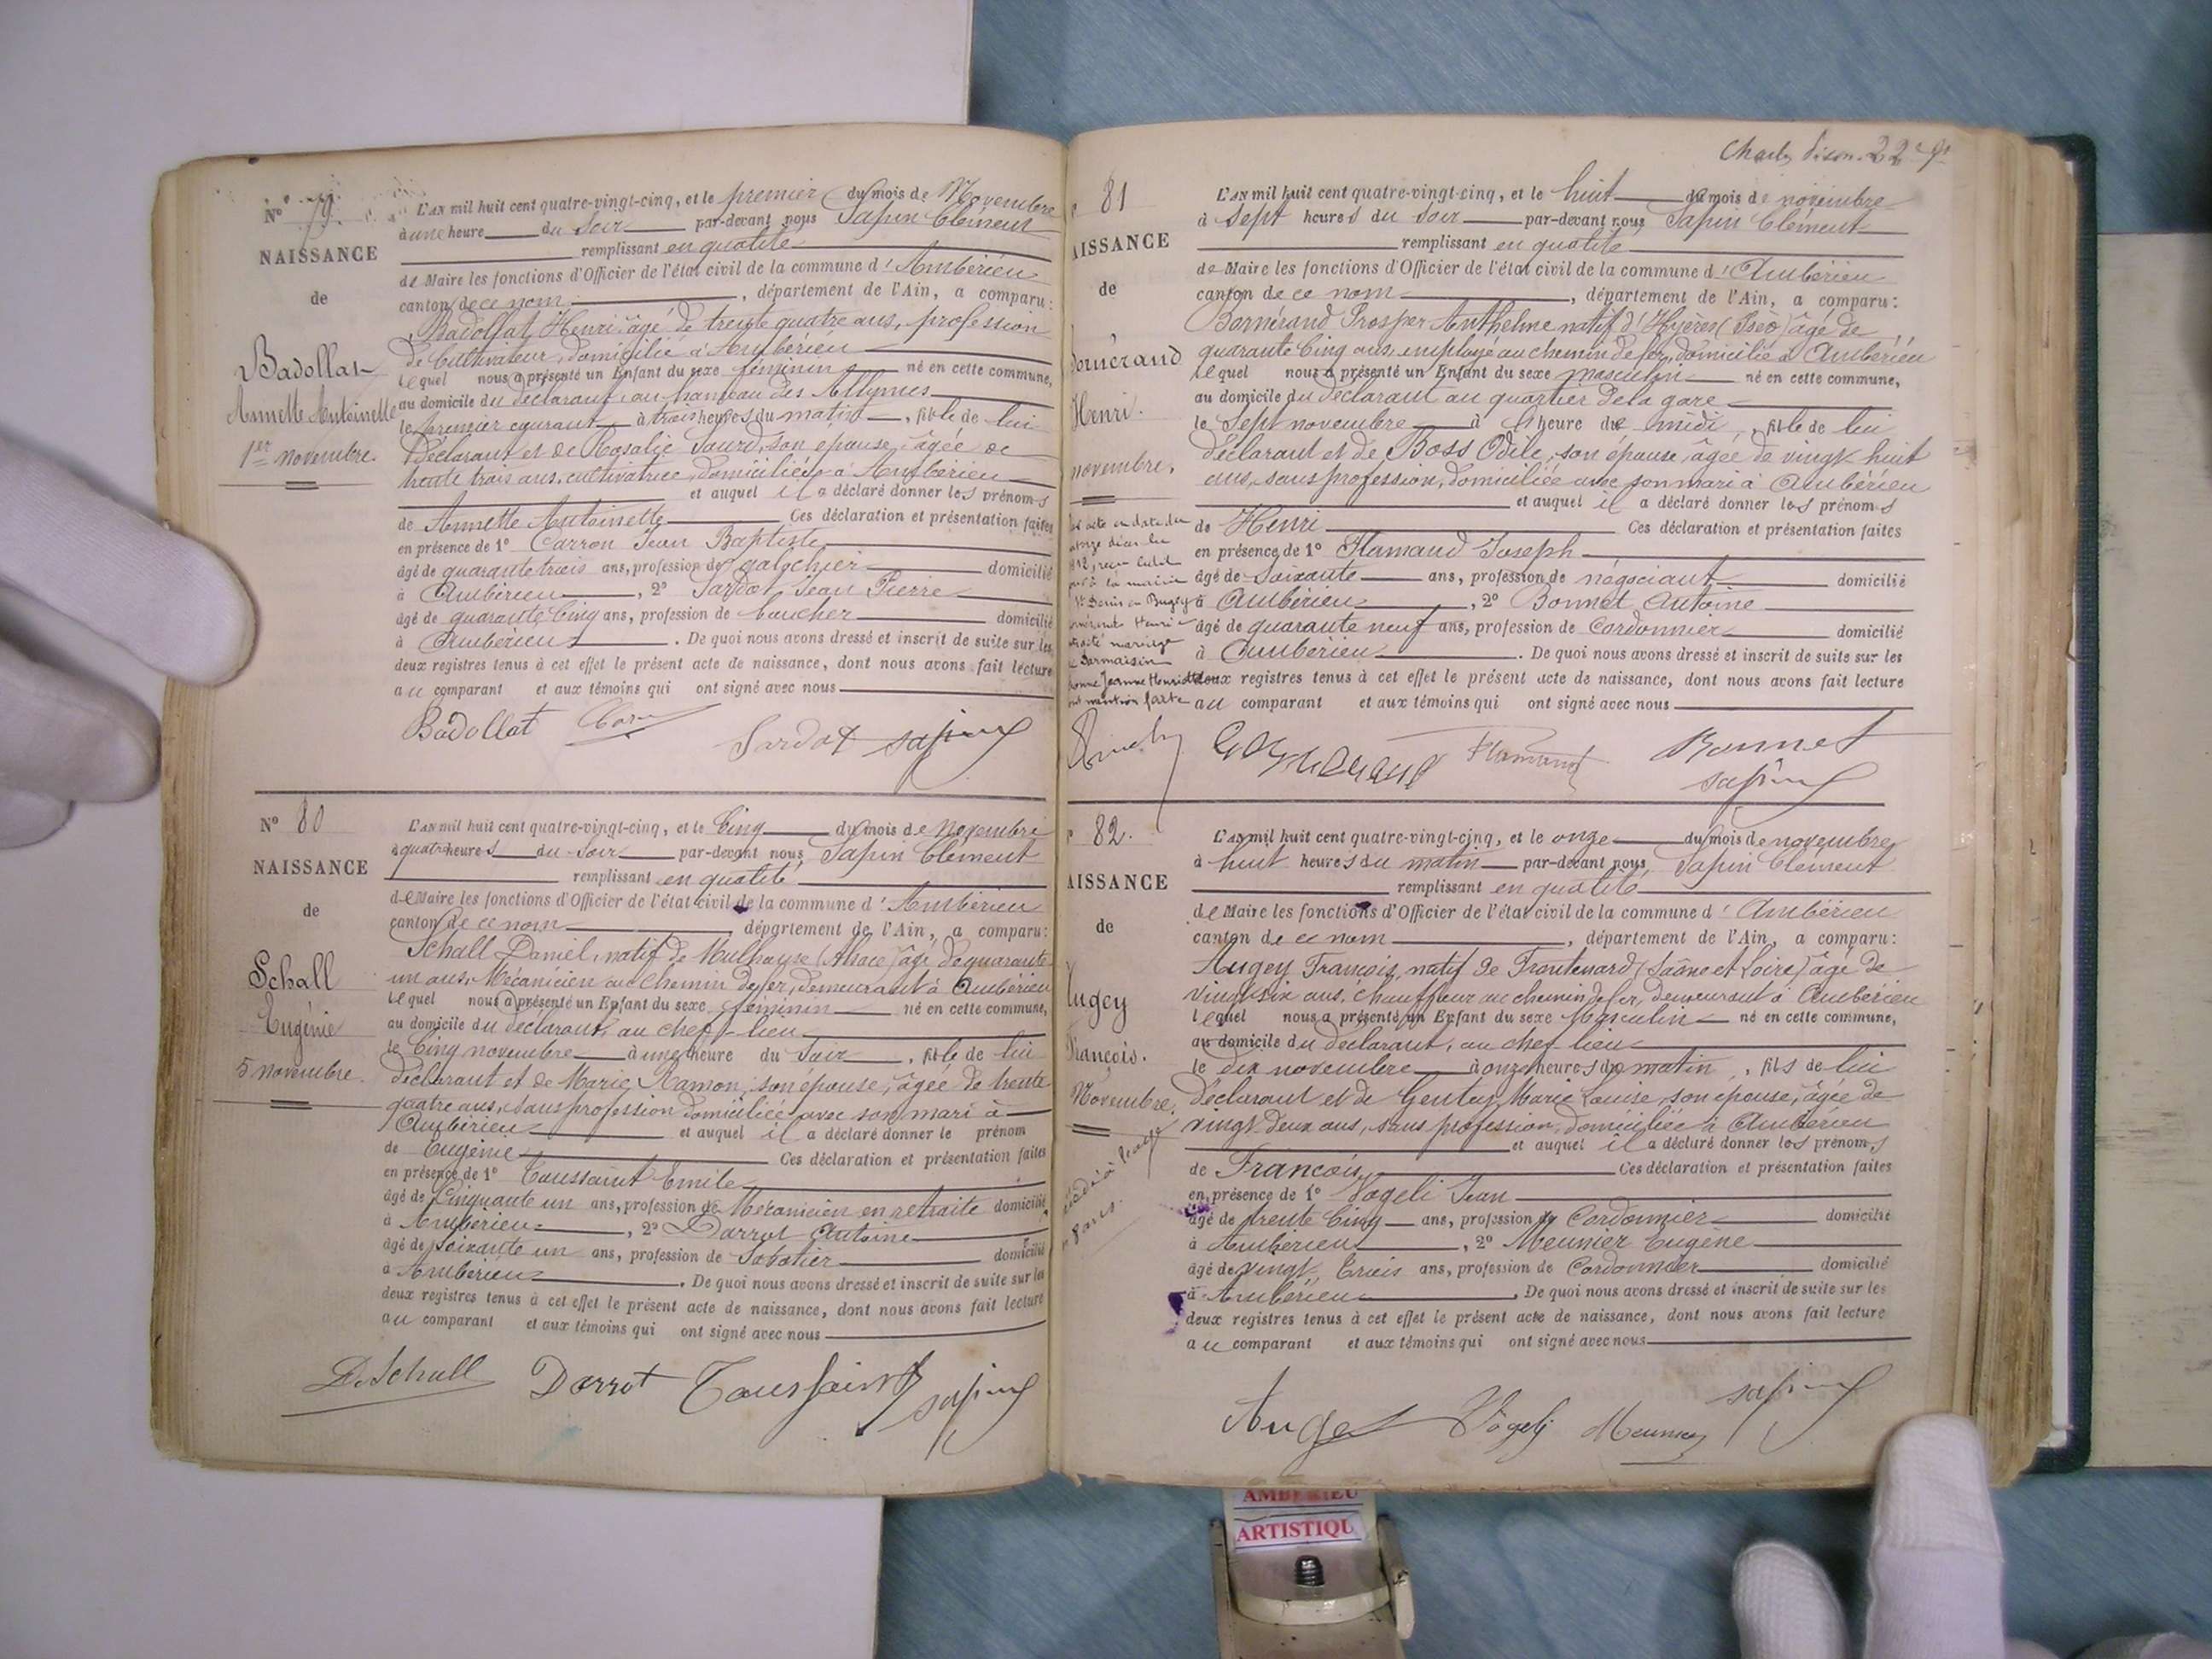 N° 79.
NAISSANCE
de
Badollat
Annette Antoinette
1er novembre.
L'AN mil huit cent quatre-vingt-cinq, et le premier du mois de Novembre
à une heure du Soir par-devant nous Sapin Clément
remplissant en qualité
de Maire les fonctions d'Officier de l'état civil de la commune d'Ambérieu
canton de ce nom, département de l'Ain, a comparu:
Badollat Henri âgé de trente quatre ans, profession
de Cultivateur, domicilié à Ambérieu
lequel nous a présenté un Enfant du sexe féminin né en cette commune,
au domicile du déclarant, au hameau des Allymes
le premier courant à trois heures du matin, fille de lui
Déclarant et de Rosalie Sourd, son épouse, âgée de
trente trois ans, cultivatrice, domiciliés à Ambérieu
et auquel il a déclaré donner les prénoms
de Annette Antoinette Ces déclaration et présentation faites
en présence de 1° Carron Jean Baptiste
âgé de quarante trois ans, profession de galochier domicilié
à Ambérieu, 2° Sardot Jean Pierre
âgé de quarante Cinq ans, profession de boucher domicilié
à Ambérieu. De quoi nous avons dressé et inscrit de suite sur les
deux registres tenus à cet effet le présent acte de naissance, dont nous avons fait lecture
au comparant et aux témoins qui ont signé avec nous
Badollat Sardot Sapin
N° 80
NAISSANCE
de
Schall
Eugénie
5 novembre.
L'AN mil huit cent quatre-vingt-cinq, et le Cinq du mois de Novembre
à quatre heures du Soir par-devant nous Sapin Clément
remplissant en qualité
de Maire les fonctions d'Officier de l'état civil de la commune d'Ambérieu
canton de ce nom département de l'Ain, a comparu:
Schall Daniel, natif de Mulhouse (Alsace) âgé de quarante
un ans, Mécanicien au Chemin de fer, demeurant à Ambérieu
lequel nous a présenté un Enfant du sexe féminin né en cette commune,
au domicile du déclarant, au chef-lieu
le Cinq novembre à une heure du Soir, fille de lui
déclarant et de Marie Ramon, son épouse, âgée de trente
quatre ans, sans profession domiciliée avec son mari à
Ambérieu et auquel il a déclaré donner le prénom
de Eugénie Ces déclaration et présentation faites
en présence de 1° Toussaint Emile
âgé de Cinquante un ans, profession de Mécanicien en retraite domicilié
à Ambérieu, 2° Darrot Antoine
âgé de soixante un ans, profession de Sabotier domicilié
à Ambérieu. De quoi nous avons dressé et inscrit de suite sur les
deux registres tenus à cet effet le présent acte de naissance, dont nous avons fait lecture
au comparant et aux témoins qui ont signé avec nous
D. Schall Darrot Toussaint Sapin
81
AISSANCE
de
Bornérand
Henri.
novembre.
acte en date du
onze
1912, reçu
par à la mairie
St Denis en Bugey
Henri
contracté mariage
Jeanne Henriette
mention faite
L'AN mil huit cent quatre-vingt-cinq, et le huit du mois de novembre
à sept heures du soir par-devant nous Sapin Clément
remplissant en qualité
de Maire les fonctions d'Officier de l'état civil de la commune d'Ambérieu
canton de ce nom, département de l'Ain, a comparu:
Bornérand Prosper Anthelme natif d'Hyères (Isère) âgé de
quarante Cinq ans, employé au chemin de fer, domicilié à Ambérieu
lequel nous a présenté un Enfant du sexe masculin né en cette commune,
au domicile du déclarant au quartier de la gare
le Sept novembre à heure de midi, fils de lui
déclarant et de Boss Odile, son épouse, âgée de vingt huit
ans, sans profession, domiciliée avec son mari à Ambérieu
et auquel il a déclaré donner les prénoms
de Henri Ces déclaration et présentation faites
en présence de 1° Flamand Joseph
âgé de Soixante ans, profession de négociant domicilié
à Ambérieu, 2° Bonnet Antoine
âgé de quarante neuf ans, profession de Cordonnier domicilié
à Ambérieu. De quoi nous avons dressé et inscrit de suite sur les
deux registres tenus à cet effet le présent acte de naissance, dont nous avons fait lecture
au comparant et aux témoins qui ont signé avec nous
Flamand Bonnet
Sapin
82.
AISSANCE
de
Augey
François.
Novembre.
L'AN mil huit cent quatre-vingt-cinq, et le onze du mois de novembre
à huit heures du matin par-devant nous Sapin Clément
remplissant en qualité
de Maire les fonctions d'Officier de l'état civil de la commune d'Ambérieu
canton de ce nom, département de l'Ain, a comparu:
Augey François, natif de Frontenard (Saône et Loire) âgé de
vingt six ans, chauffeur au chemin de fer, demeurant à Ambérieu
lequel nous a présenté un Enfant du sexe Masculin né en cette commune,
au domicile du déclarant, au chef-lieu
le dix novembre à onze heures du matin, fils de lui
déclarant et de Gentay Marie Louise, son épouse, âgée de
vingt deux ans, sans profession, domiciliée à Ambérieu
et auquel il a déclaré donner les prénoms
de François, Ces déclaration et présentation faites
en présence de 1° Vogeli Jean
âgé de trente Cinq ans, profession de Cordonnier domicilié
à Ambérieu, 2° Meunier Eugène
âgé de vingt trois ans, profession de Cordonnier domicilié
à Ambérieu. De quoi nous avons dressé et inscrit de suite sur les
deux registres tenus à cet effet le présent acte de naissance, dont nous avons fait lecture
au comparant et aux témoins qui ont signé avec nous
Augey Vogeli Meunier Sapin
AMBERIEU
ARTISTIQU